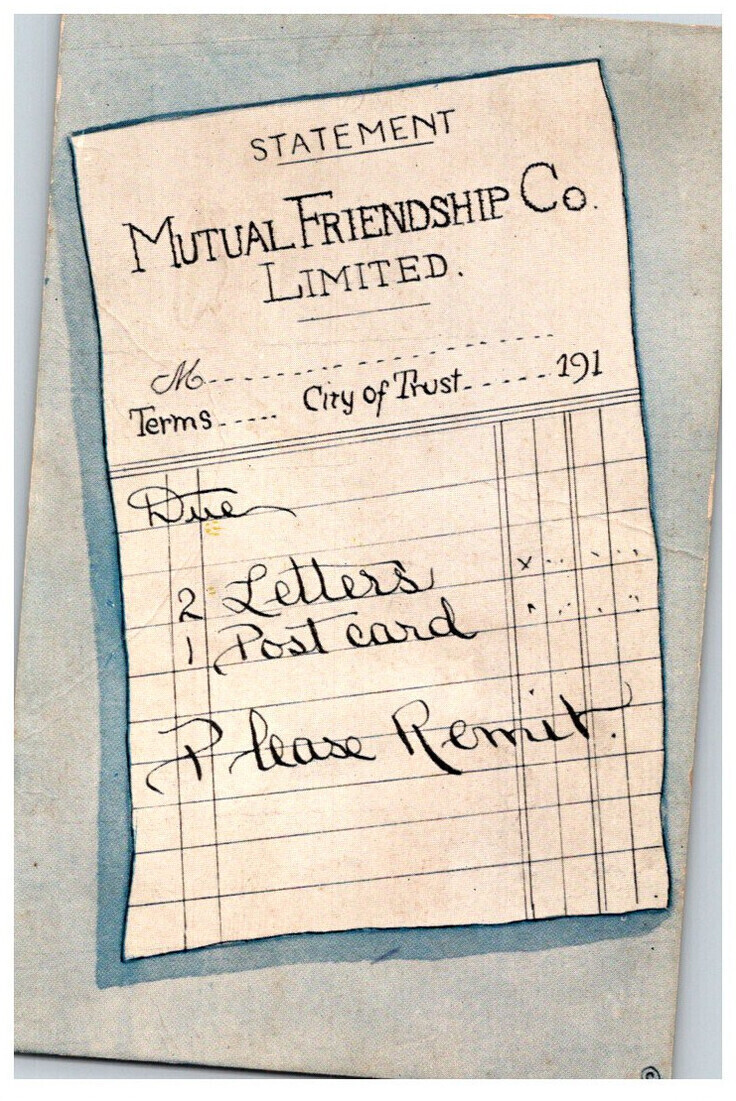 STATEMENT
MUTUAL FRIENDSHIP CO.
LIMITED.
M
Terms City of Trust 191
Due
2 Letters
1 Post card
Please Remit.
©